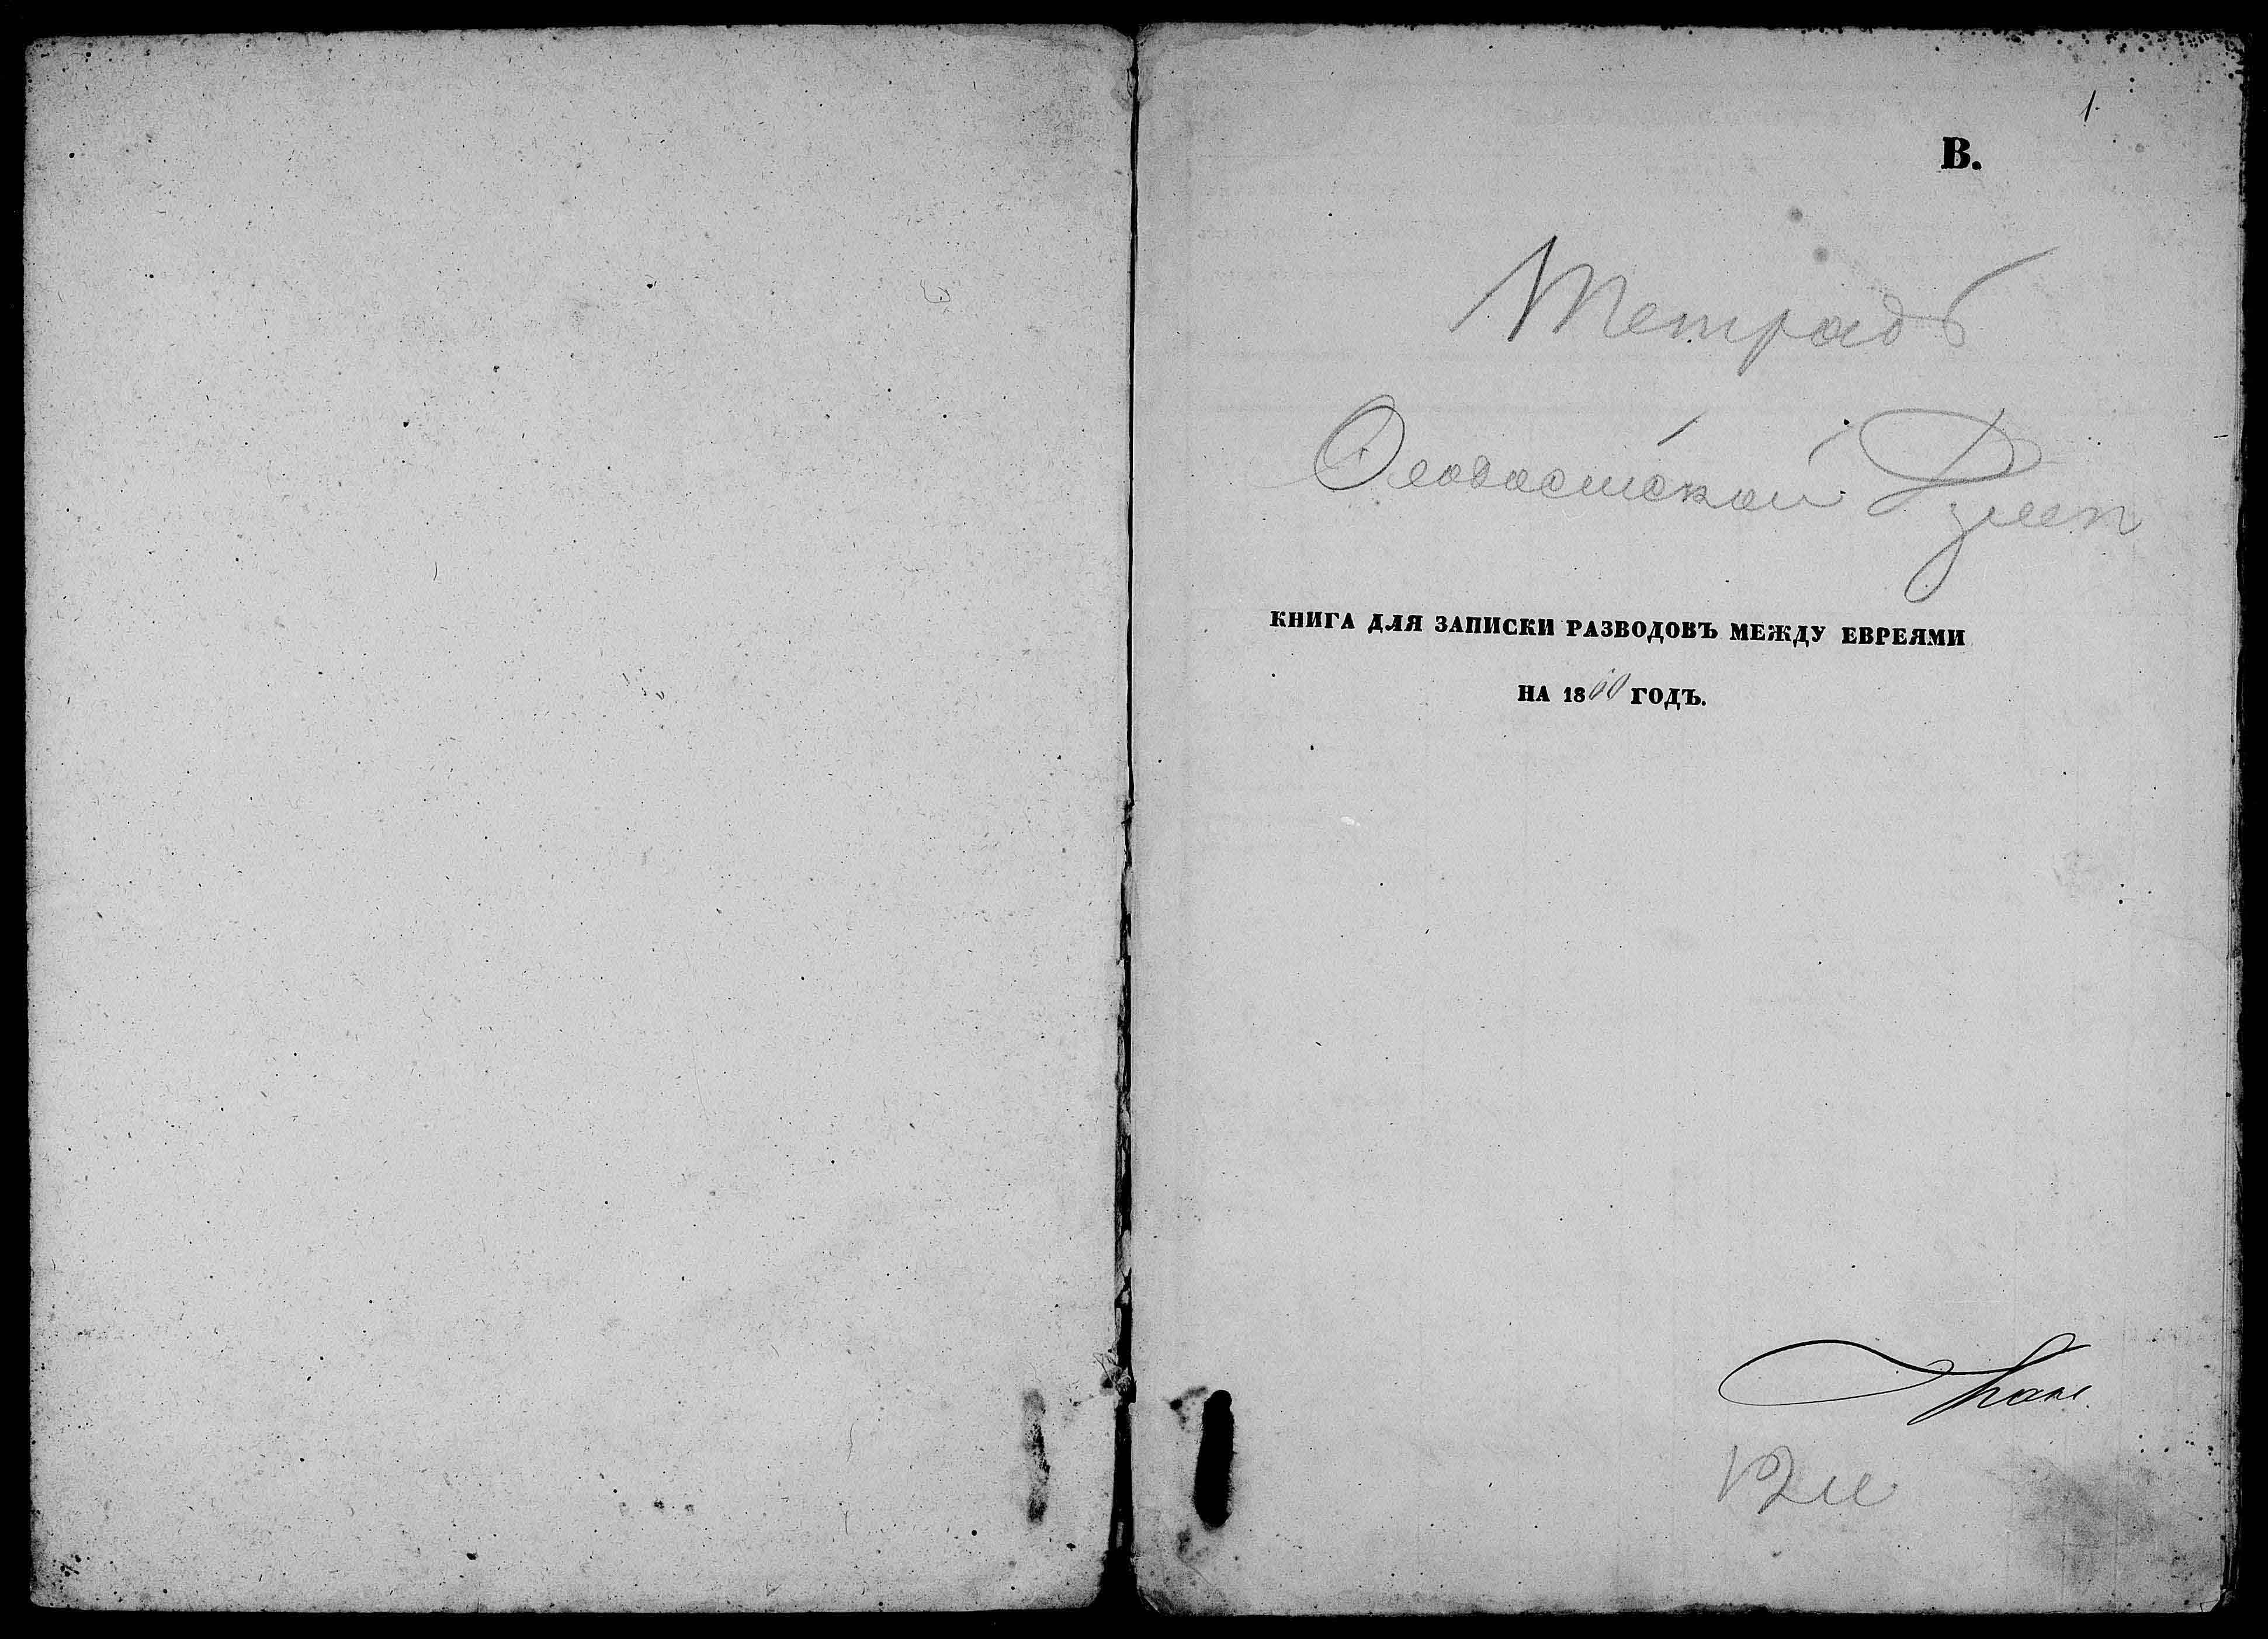 1
В.
Тетрадь
Ѳеодосійской Думы
КНИГА ДЛЯ ЗАПИСКИ РАЗВОДОВЪ МЕЖДУ ЕВРЕЯМИ
НА 1860 ГОДЪ.